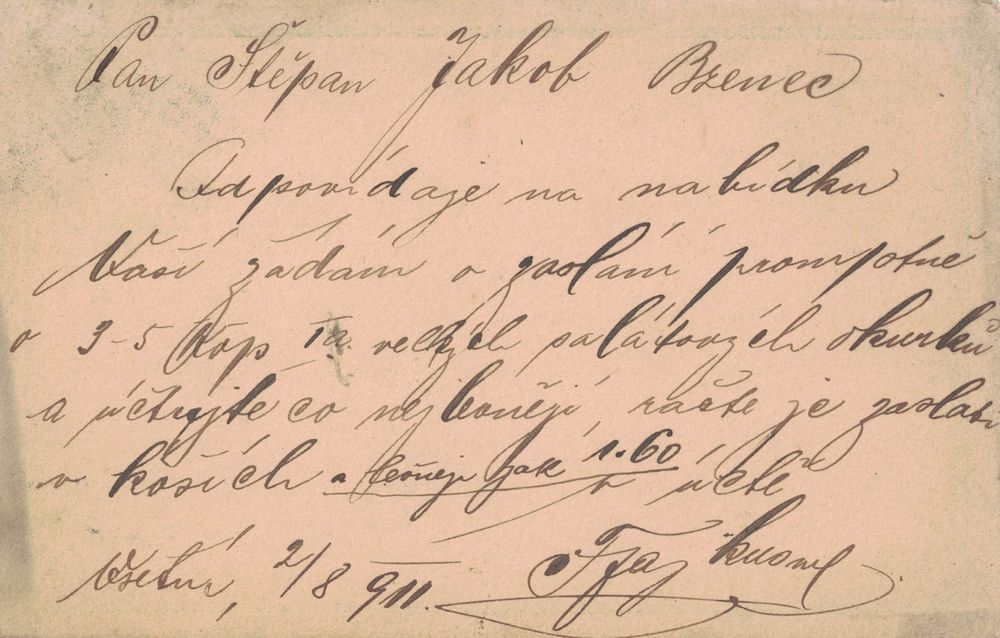 Pan Štěpan Jakob Bzenec
Odpovídaje na nabídku
Vaší žádám o zaslání promptně
o 3-5 kop Ia velkých salátových okurků
a účtujte co nejlevněji, račte je zaslati
v košich a levněji jak 1.60 v účtě
Všetuly, 2/8 911.